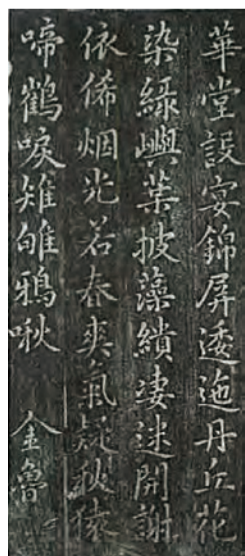 華堂設宴錦屏逶迤丹丘花
染綠嶼葉披藻繢淒迷開謝
依俙烟光若春爽氣疑秋猿
啼鶴唳雉雊鴉啾 金魯